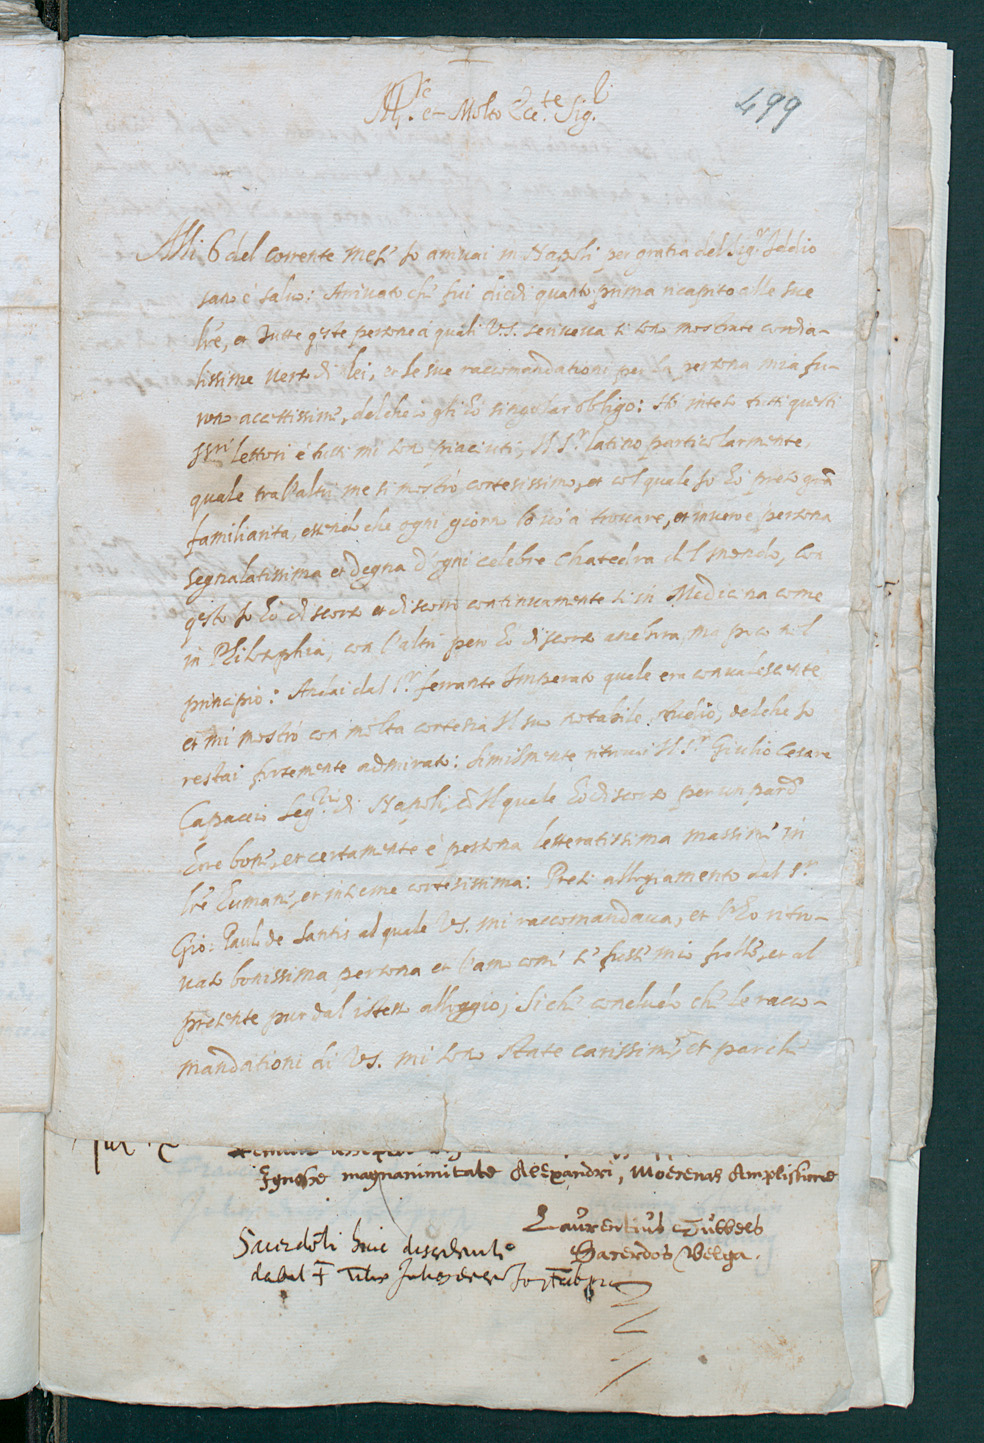 499
Ill.re e Molto Ecc.te Sig.r
Alli 6 del corrente mese Io arrivai in Napoli per gratia del Sig.r Iddio
sano e salvo: Arrivato che fui diedi quanto prima ricapito alle sue
lr̃e, et tutte q̃ste persone a quali V.S. scriveva si sono mostrate cordia-
lissime verso di lei, et le sue raccomandationi per la persona mia fu-
rono accettissime, del che gli hò singolar obligo: Hò inteso tutti questi
ss.ri lettori e tutti mi sono piaciuti, Il S.r latino particolarmente,
quale tra l'altri me si mostrò cortesissimo, et col quale Io hò preso grã
familiarita, essendo che ogni giorno lo vò a trovare, et invero è persona
segnalatissima et degna d'ogni celebre Chatedra del mondo, con
q̃sto Io hò discorso et discorro continuamente si in Medicina come
in Philosophia, con l'altri però hò discorso anchora, ma poco nel
principio: Andai dal S.r ferrante Imperato quale era convalescente
et mi mostrò con molta cortesia Il suo notabile studio, del che Io
restai fortemente admirato: Similmente ritrovai Il S.r Giulio Cesare
Capaccio Seg.rio di Napoli, cõ Il quale hò discorso per un par d'
hore bone, et certamente è persona letteratissima massime in
lr̃e humane, et insieme cortesissima: Presi allogiamento dal S.r
Gio: Paulo de Santis al quale V.S. mi raccomandava, et l'hò ritro-
vato bonissima persona et l'amo come se fusse mio fratello, et al
presente pur dal istesso alloggio; Si che concludo che le racco-
mandationi di V.S. mi sono state carissime, et perche
Ignosce magnanimitate Alexandri, Moecenas Amplissime
Laurentius Dubbels
Sacerdos Belga.
Sacerdoti huic discedenti